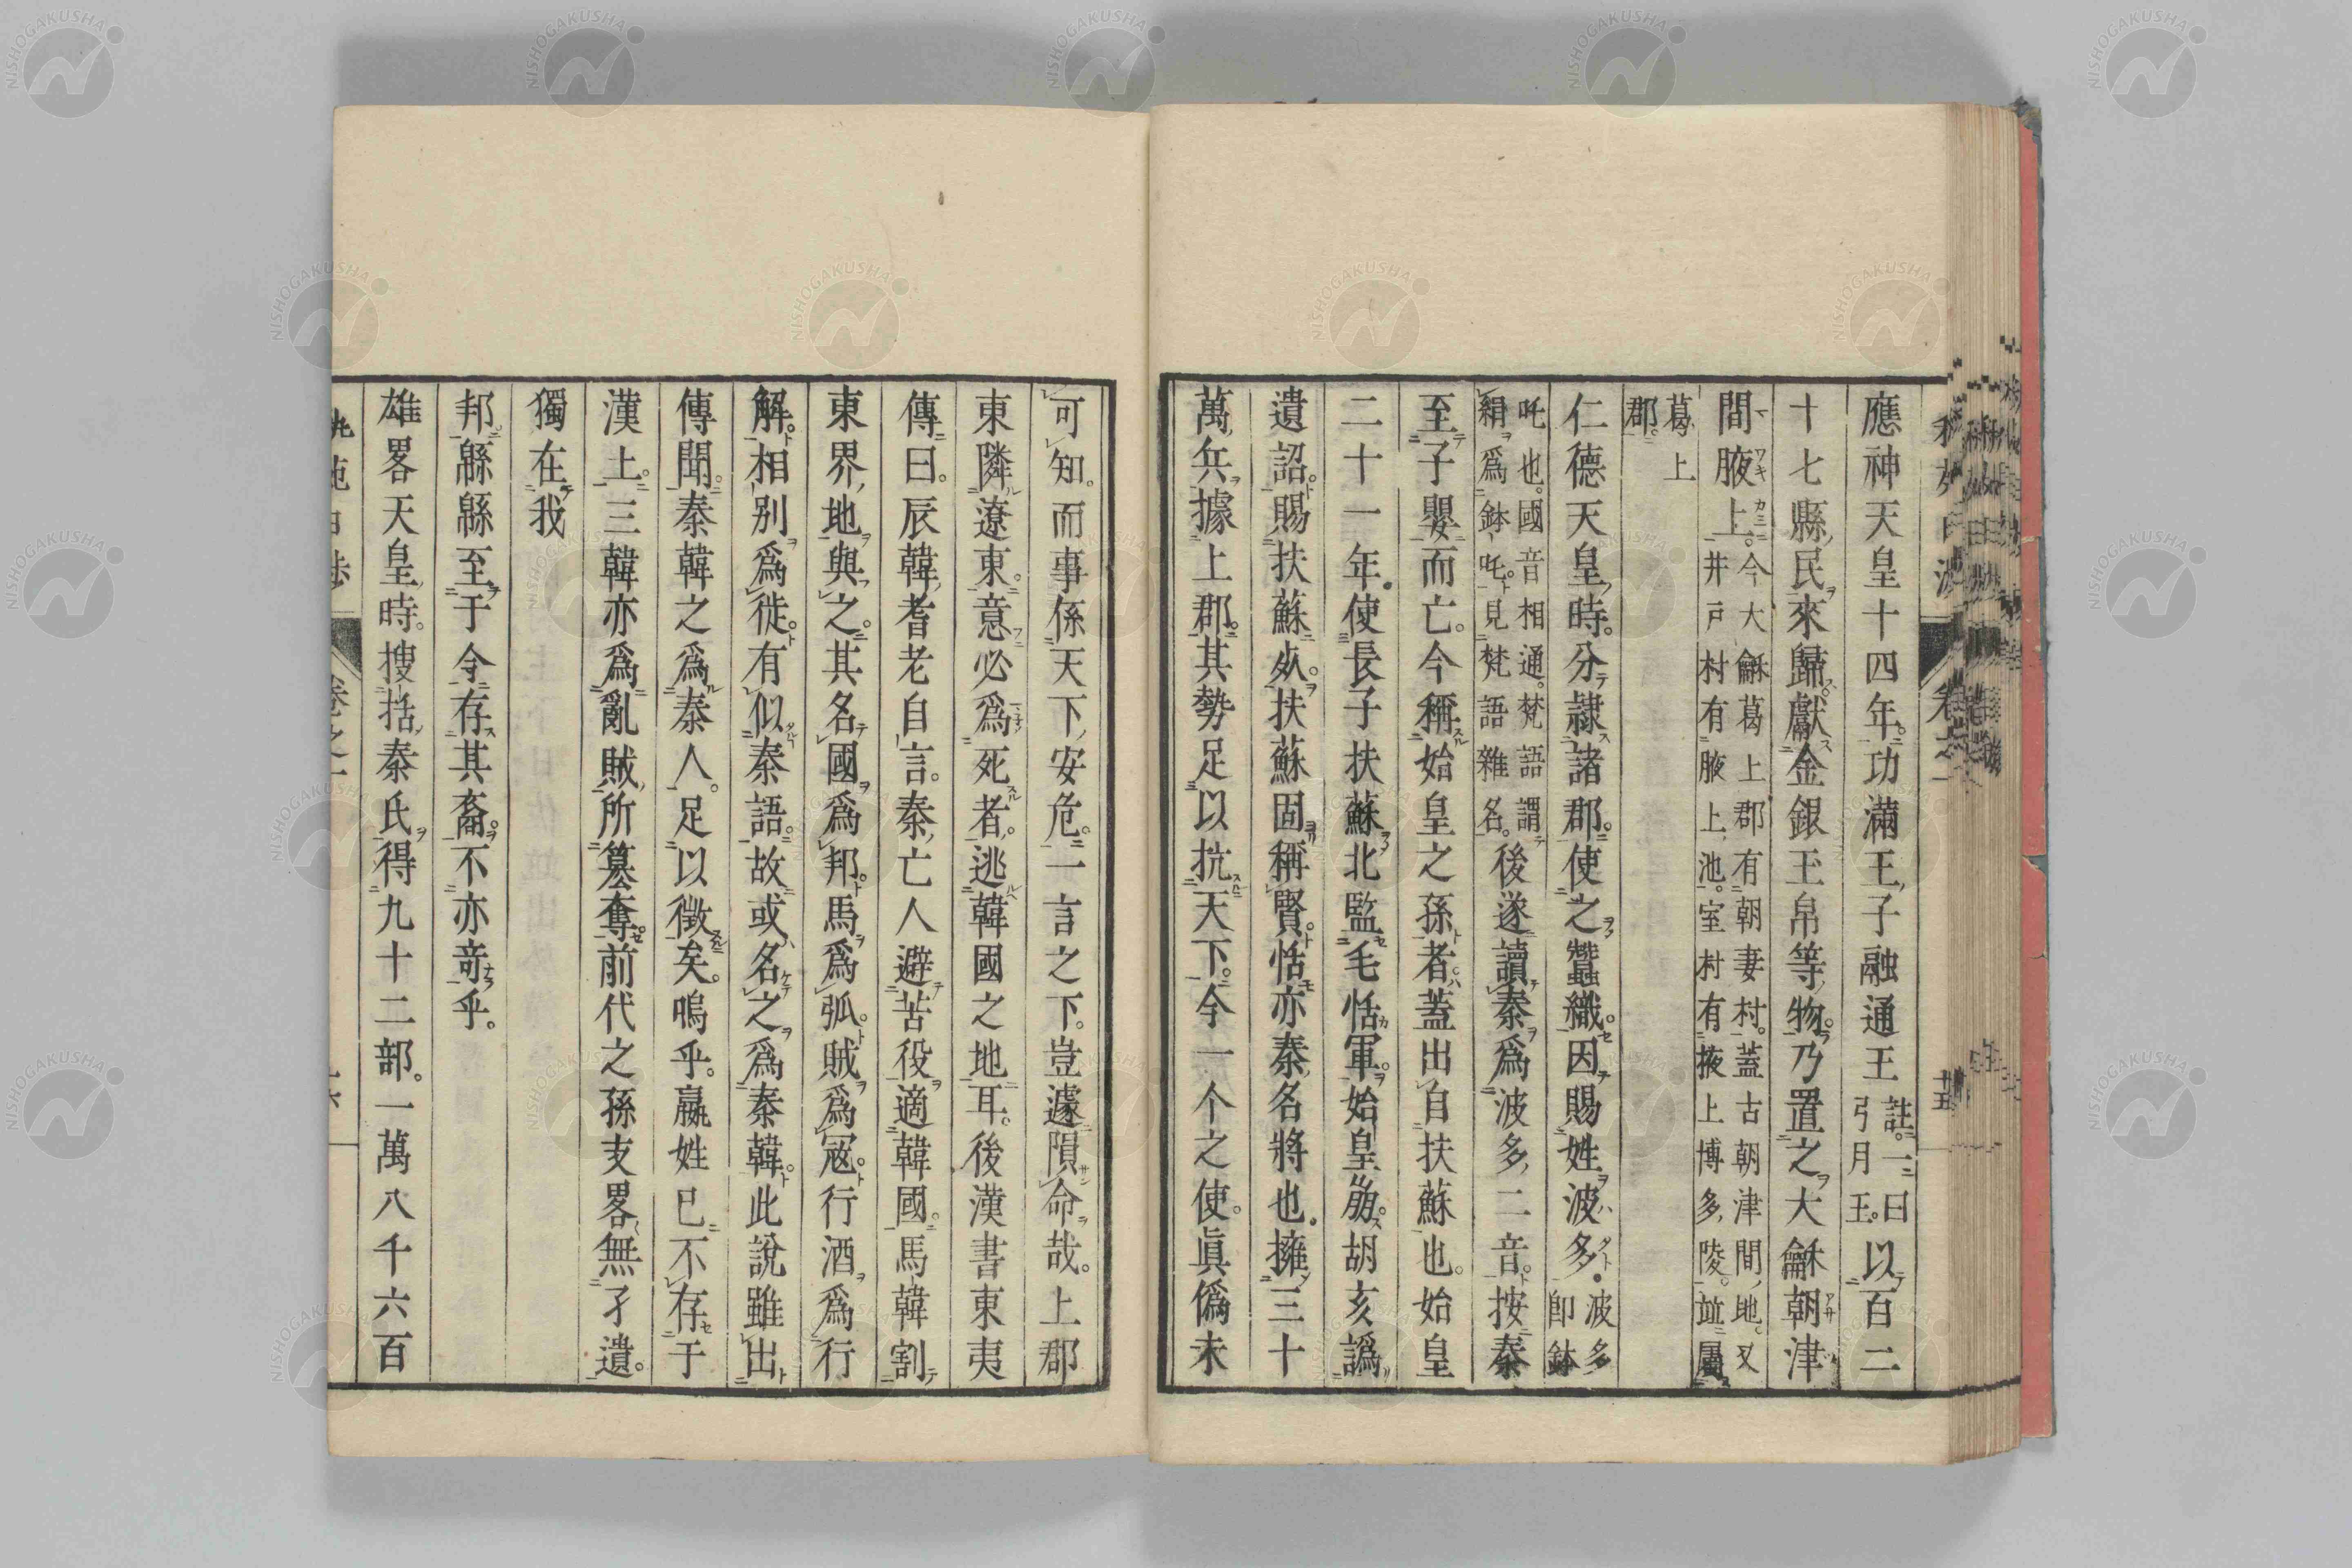 應神天皇十四年。功滿王子融通王註。一曰弓月王。以百二
十七縣民來歸。獻金銀玉帛等物。乃置之大龢朝津
間腋上。今大龢葛上郡有朝妻村。蓋古朝津間地。又井戸村有腋上池。室村有掖上博多陵。竝屬
葛上郡。
仁德天皇時。分隷諸郡。使之蠶織。因賜姓波多。波多卽鉢
吒也。國音相通。梵語謂絹爲鉢吒。見梵語雜名。後遂讀秦爲波多二音。按秦
至子嬰而亡。今稱始皇之孫者。蓋出自扶蘇也。始皇
二十一年。使長子扶蘇北監毛恬軍。始皇崩。胡亥譌
遺詔。賜扶蘇死。扶蘇固稱賢。恬亦秦名將也。擁三十
萬兵據上郡。其勢足以抗天下。今一个之使。眞僞未
可知。而事係天下安危。一言之下。豈遽隕命哉。上郡
東隣遼東。意必爲死者。逃韓國之地耳。後漢書東夷
傳曰。辰韓耆老自言。秦亡人避苦役適韓國。馬韓割
東界地與之。其名國爲邦。馬爲弧。賊爲寇。行酒爲行
解。相別爲徙。有似秦語。故或名之爲秦韓。此說雖出
傳聞。秦韓之爲秦人。足以徵矣。嗚乎。嬴姓已不存于
漢上。三韓亦爲亂賊所篡奪。前代之孫支畧無孑遺。
獨在我
邦緜緜至于今存其裔。不亦竒乎。
雄畧天皇時。搜括秦氏得九十二部。一萬八千六百